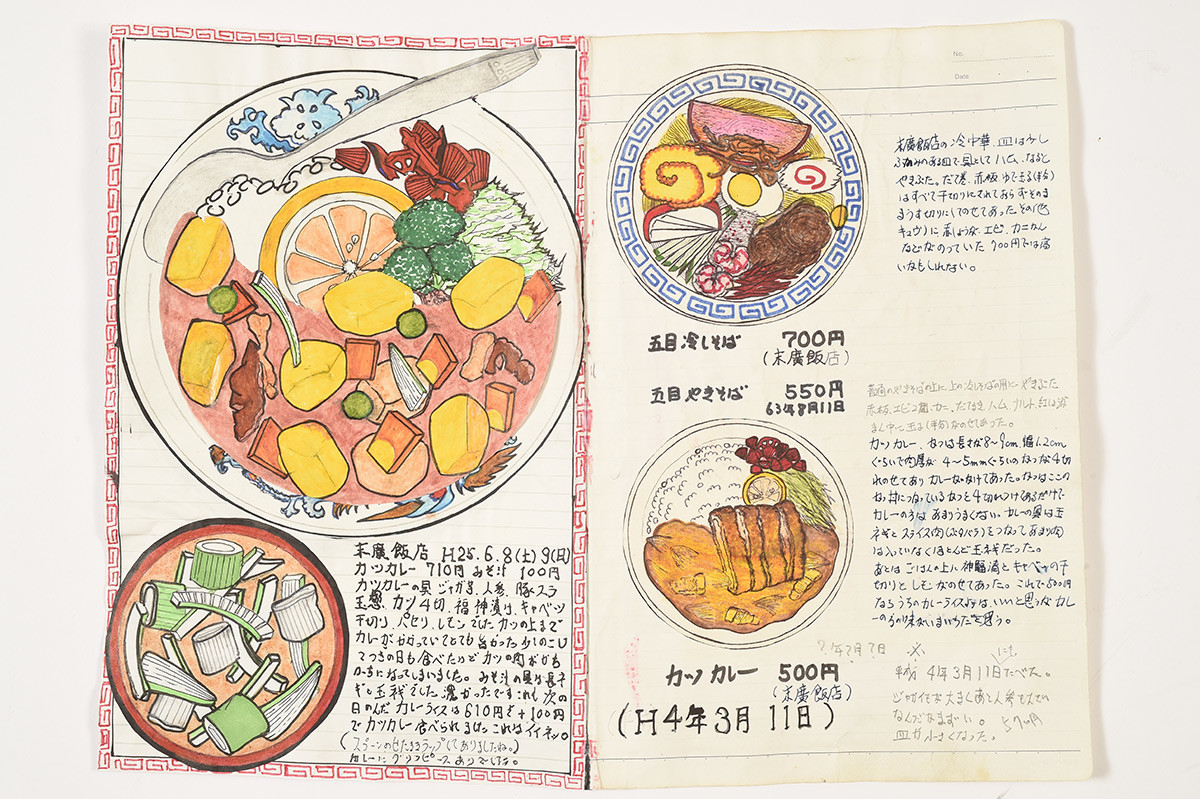 末廣飯店 H25.6.8(土)9(日)
カツカレー 710円 みそ汁 100円
カツカレーの具 ジャガ芋、人参、豚スラ
玉葱、カツ4切、福神漬け、キャベツ
千切り、パセリ、レモンでした カツの上まで
カレーがかかっていてとても旨かった 少しのこし
てつぎの日も食べたけどカツの肉がかち
かちになってしまいました。みそ汁の具は長ネ
ギと玉ネギでした 濃かったです これも次の
日のんだ カレーライスは610円 +100円
でカツカレー食べられました これはイイネッ。
(スプーンのせたままラップしてありましたね。)
カレーに グリンピース ありでした。
No.
Date
末廣飯店の冷中華 皿は少し
ふかみのある皿で具として ハム、なると
やきぶた。だて巻、赤板 ゆで玉子(半分)
はすべて千切りにされておらずそのま
まうす切りにしてのせてあった その他
キュウリに 紅しょうが、エビ、カニかん
などがのっていた 700円では高
いかもしれない。
五目冷しそば 700円
(末廣飯店)
五目やきそば 550円
63年8月11日
普通のやきそばの上に上の冷しそばの用に やきぶた
赤板、エビ2匹、カニ、だてまき、ハム、ナルト、紅しょうが
まん中に玉子(半分)がのせてあった。
カツカレー、カツは長さが8〜9cm 幅1.2cm
ぐらいで肉厚が 4〜5mmぐらいのカツが4切
れのせてあり カレーがかけてあった。カツはここの
カツ丼につかっているカツを4切れつけてあるだけで
カレーのほうは あまりうまくない。カレーの具は玉
ネギと スライス肉(ぶたバラ)をつかってあまり肉
は入っていなくほとんど玉ネギだった。
あとは ごはんの上に 神福漬とキャベツの千
切りと レモンがのせてあった。これで500円
なら うちのカレーライスよりは、いいと思うが カレ
ーのほうの味がいまいちだと思う。
カツカレー 500円
(末廣飯店)
(H4年3月11日)
?年?月?日
平成 4年3月11日にもたべた。
ジャガイモ大きくあと人参もでかい
なんだかまずい。 570円
皿が小さくなった。